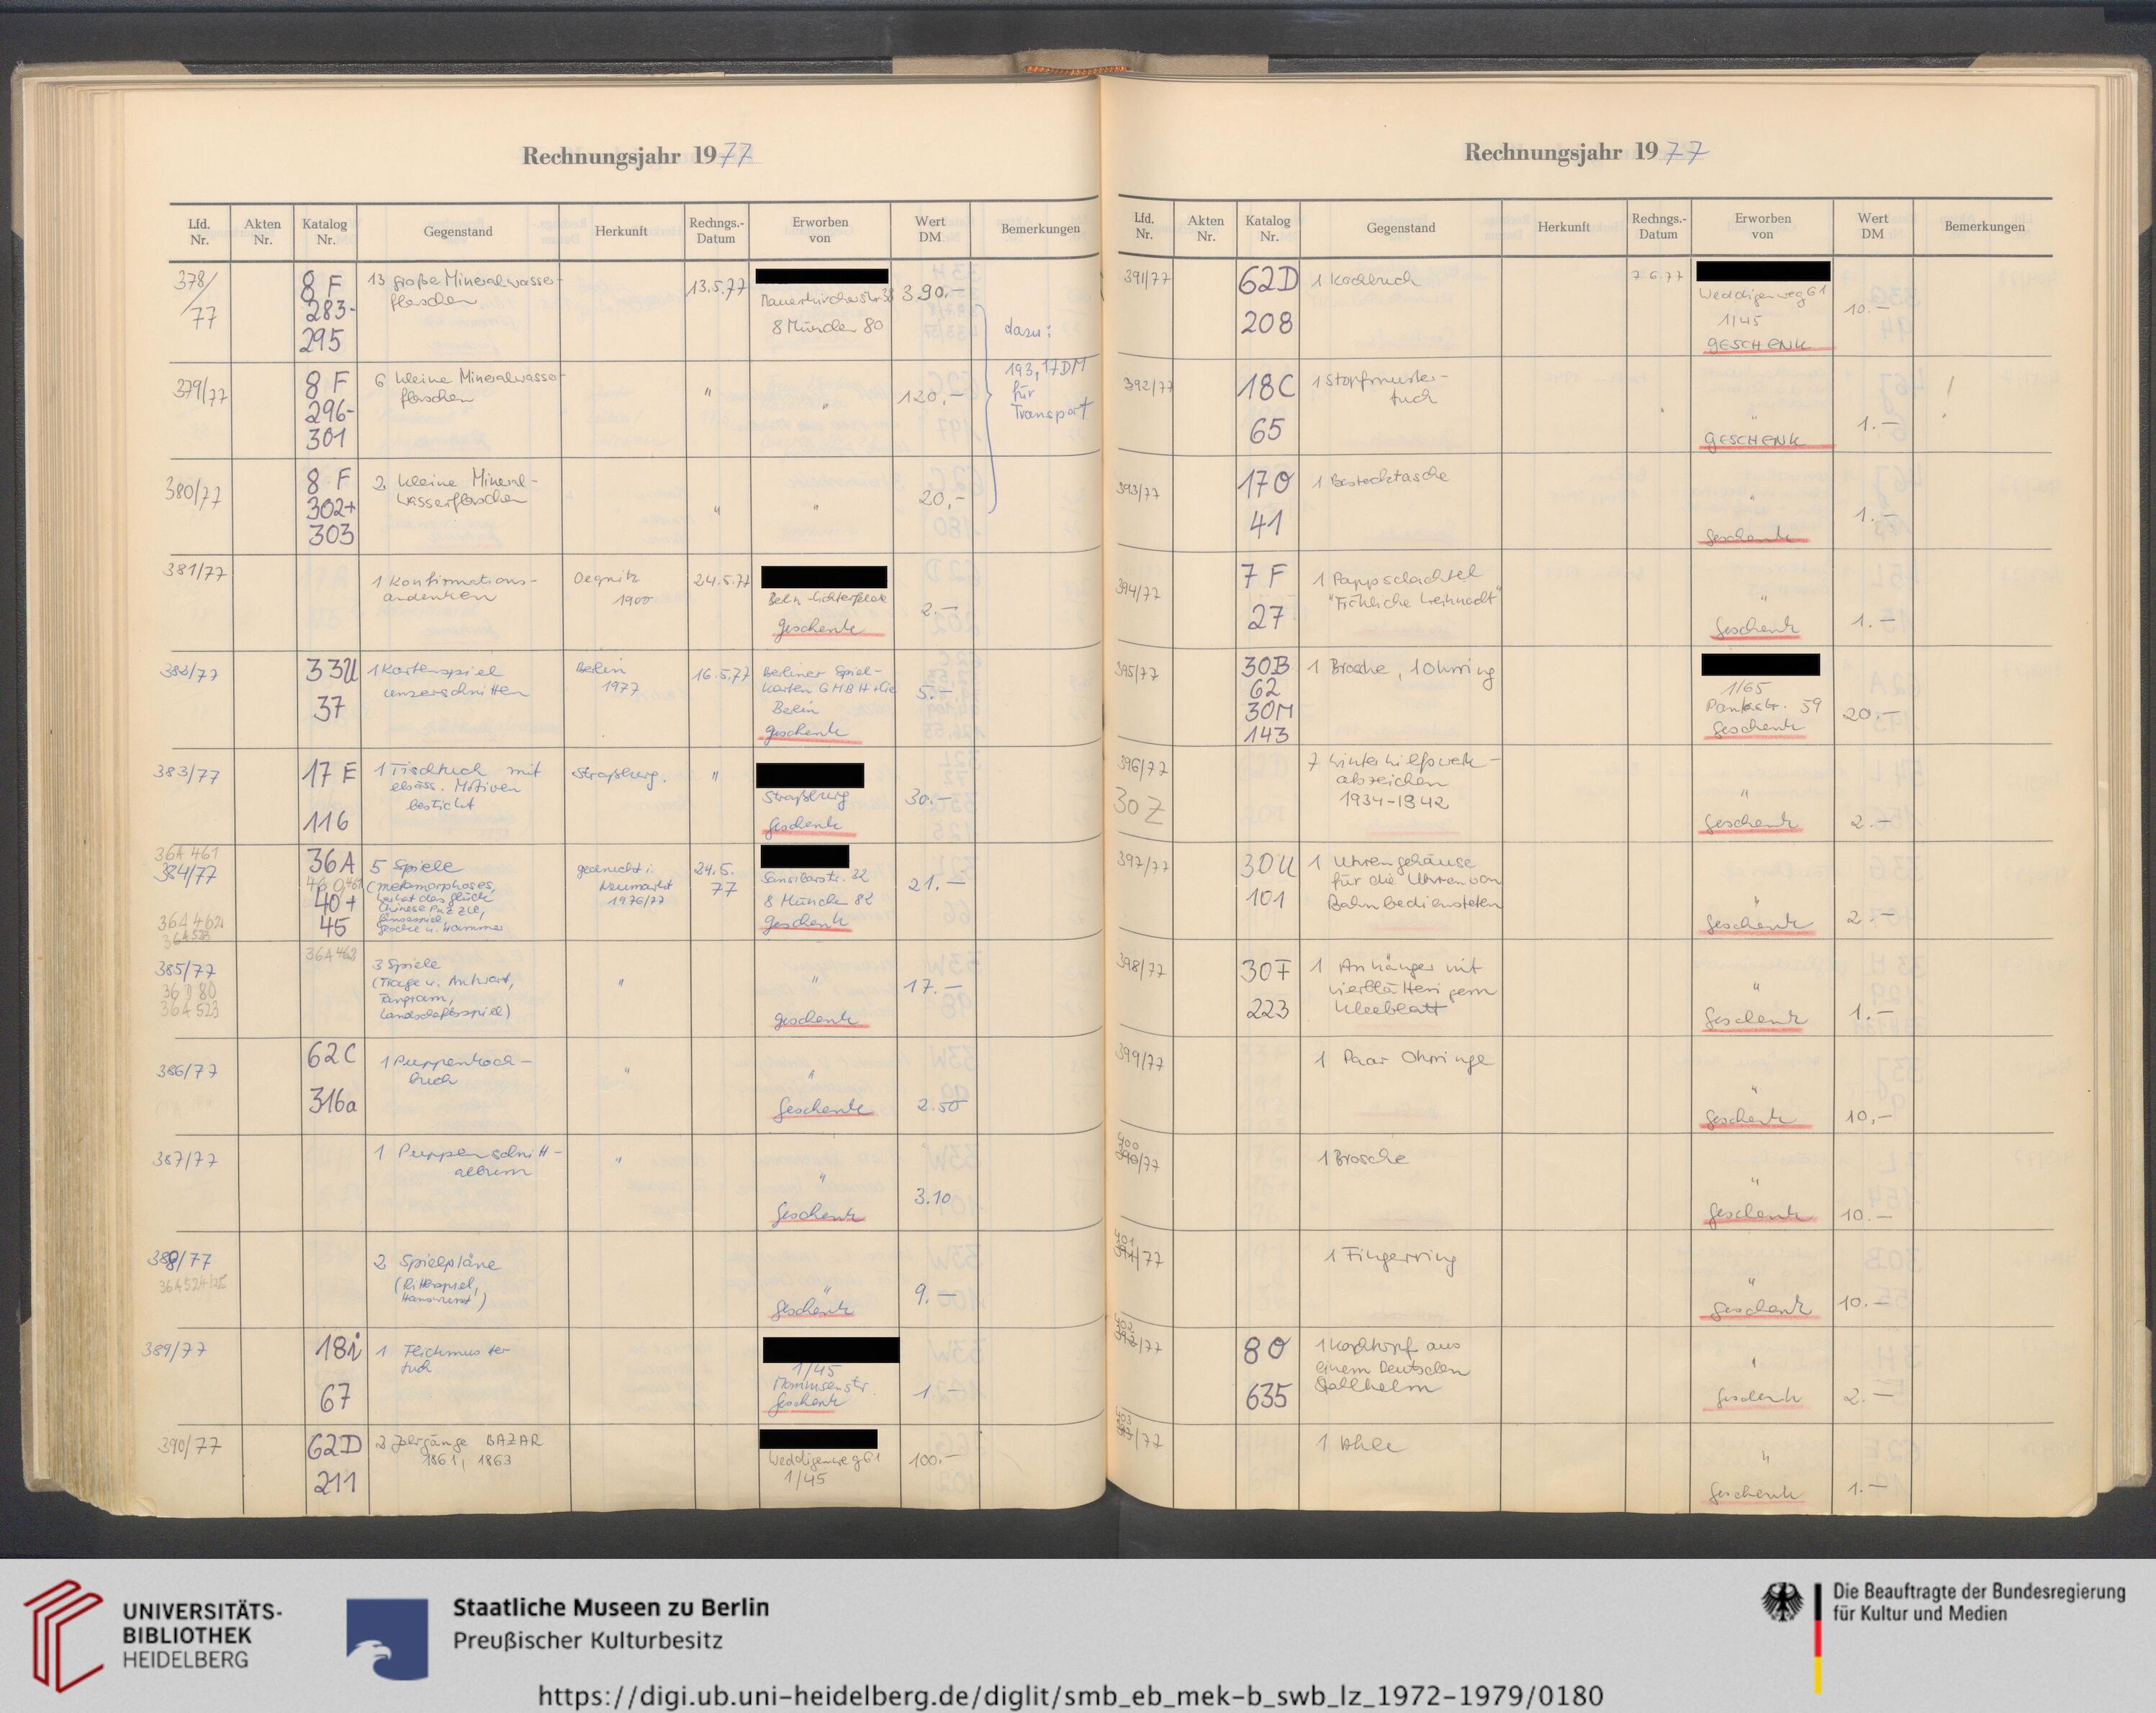 Rechnungsjahr 1977
Lfd. Nr.
Akten Nr.
Katalog Nr.
Gegenstand
Herkunft
Rechngs.-Datum
Erworben von
Wert DM
Bemerkungen
378/77
8 F 283-295
13 große Mineralwasser-
flaschen
13.5.77
8 München 80
390.-
dazu:
193,17 DM
für
Transport
379/77
8 F 296-301
6 kleine Mineralwasser-
flaschen
"
"
120.-
380/77
8 F 302+303
2 kleine Mineral-
wasserflaschen
"
"
20,-
381/77
1 Konfirmations-
andenken
1900
24.5.77
Berlin-Lichterfelde
Geschenk
2.-
382/77
33U 37
1 Kartenspiel
unzerschnitten
Berlin
1977
16.5.77
Berliner Spiel-
karten GMBH+Co
Berlin
Geschenk
5.-
383/77
17 E 116
1 Tischtuch mit
elsäss. Motiven
bestickt
Straßburg.
"
Straßburg
Geschenk
30.-
36A 461
384/77
36A 462
36A 523
36A
40+
45
5 Spiele
(Metamorphoses,
Chinese Puzzle,
Glocke u. Hammer
gedruckt i.
Neumarkt
1976/77
24.5.
77
Sansibarstr. 32
8 München 82
Geschenk
21.-
385/77
36A 523
36A 462
3 Spiele
(Frage u. Antwort,
Tangram,
Landschaftsspiel)
"
"
Geschenk
17.-
386/77
62C 316a
1 Puppenkoch-
buch
"
"
Geschenk
2.50
387/77
1 Puppenschnitt-
album
"
"
Geschenk
3.10
388/77
2 Spielpläne
(Ritterspiel,
Hanswurst)
"
Geschenk
9.-
389/77
18i 67
1 Flickmuster
tuch
1/45
Mommsenstr.
Geschenk
1.-
390/77
62D 211
2 Jahrgänge BAZAR
1861, 1863
Weddigenweg 61
1/45
100.-
Rechnungsjahr 1977
Lfd. Nr.
Akten Nr.
Katalog Nr.
Gegenstand
Herkunft
Rechngs.-Datum
Erworben von
Wert DM
Bemerkungen
391/77
62D 208
1 Kochbuch
7.6.77
Weddigenweg 61
1/45
GESCHENK
10.-
392/77
18C 65
1 Stopfmuster-
tuch
"
GESCHENK
1.-
!
393/77
170 41
1 Bestecktasche
"
Geschenk
1.-
394/77
7 F 27
1 Pappschachtel
"Fröhliche Weihnacht"
"
Geschenk
1.-
395/77
30B 62
30M 143
1 Brosche, 1 Ohrring
1/65
Pankstr. 59
Geschenk
20.-
396/77
30 Z
7 Winterhilfswerk-
abzeichen
1934-1942
"
Geschenk
2.-
397/77
30U 101
1 Uhrengehäuse
für die Uhren von
Bahnbediensteten
"
Geschenk
2.-
398/77
30F 223
1 Anhänger mit
vierblättrigem
Kleeblatt
"
Geschenk
1.-
399/77
1 Paar Ohrringe
"
Geschenk
10,-
400
390/77
1 Brosche
"
Geschenk
10.-
401
391/77
1 Fingerring
"
Geschenk
10.-
402
392/77
80 635
1 Kochtopf aus
einem Deutschen
Stahlhelm
"
Geschenk
2.-
403
393/77
1 Ahle
"
Geschenk
1.-
UNIVERSITÄTS-
BIBLIOTHEK
HEIDELBERG
Staatliche Museen zu Berlin
Preußischer Kulturbesitz
Die Beauftragte der Bundesregierung
für Kultur und Medien
https://digi.ub.uni-heidelberg.de/diglit/smb_eb_mek-b_swb_lz_1972-1979/0180